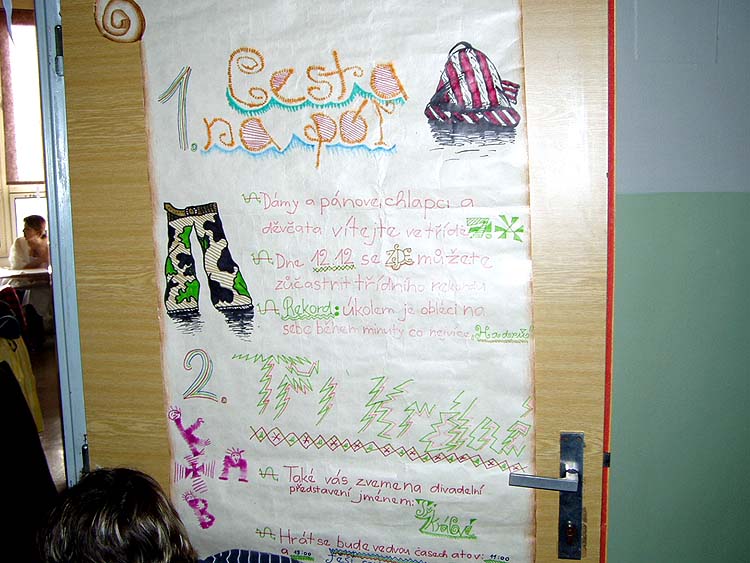 1. Cesta
na pór
Dámy a pánove, chlapci a
děvčata vítejte ve třídě 7.
Dne 12.12 se ZDE můžete
zúčastnit třídního rekordu
Rekord: Úkolem je obléci na
sebe během minuty co nejvíce „Hadrů"
2. Tři
K + M
+
B
Také vás zveme na divadelní
představení jménem: Tři
Králové
Hrát se bude ve dvou časech a to v: 11:00
a